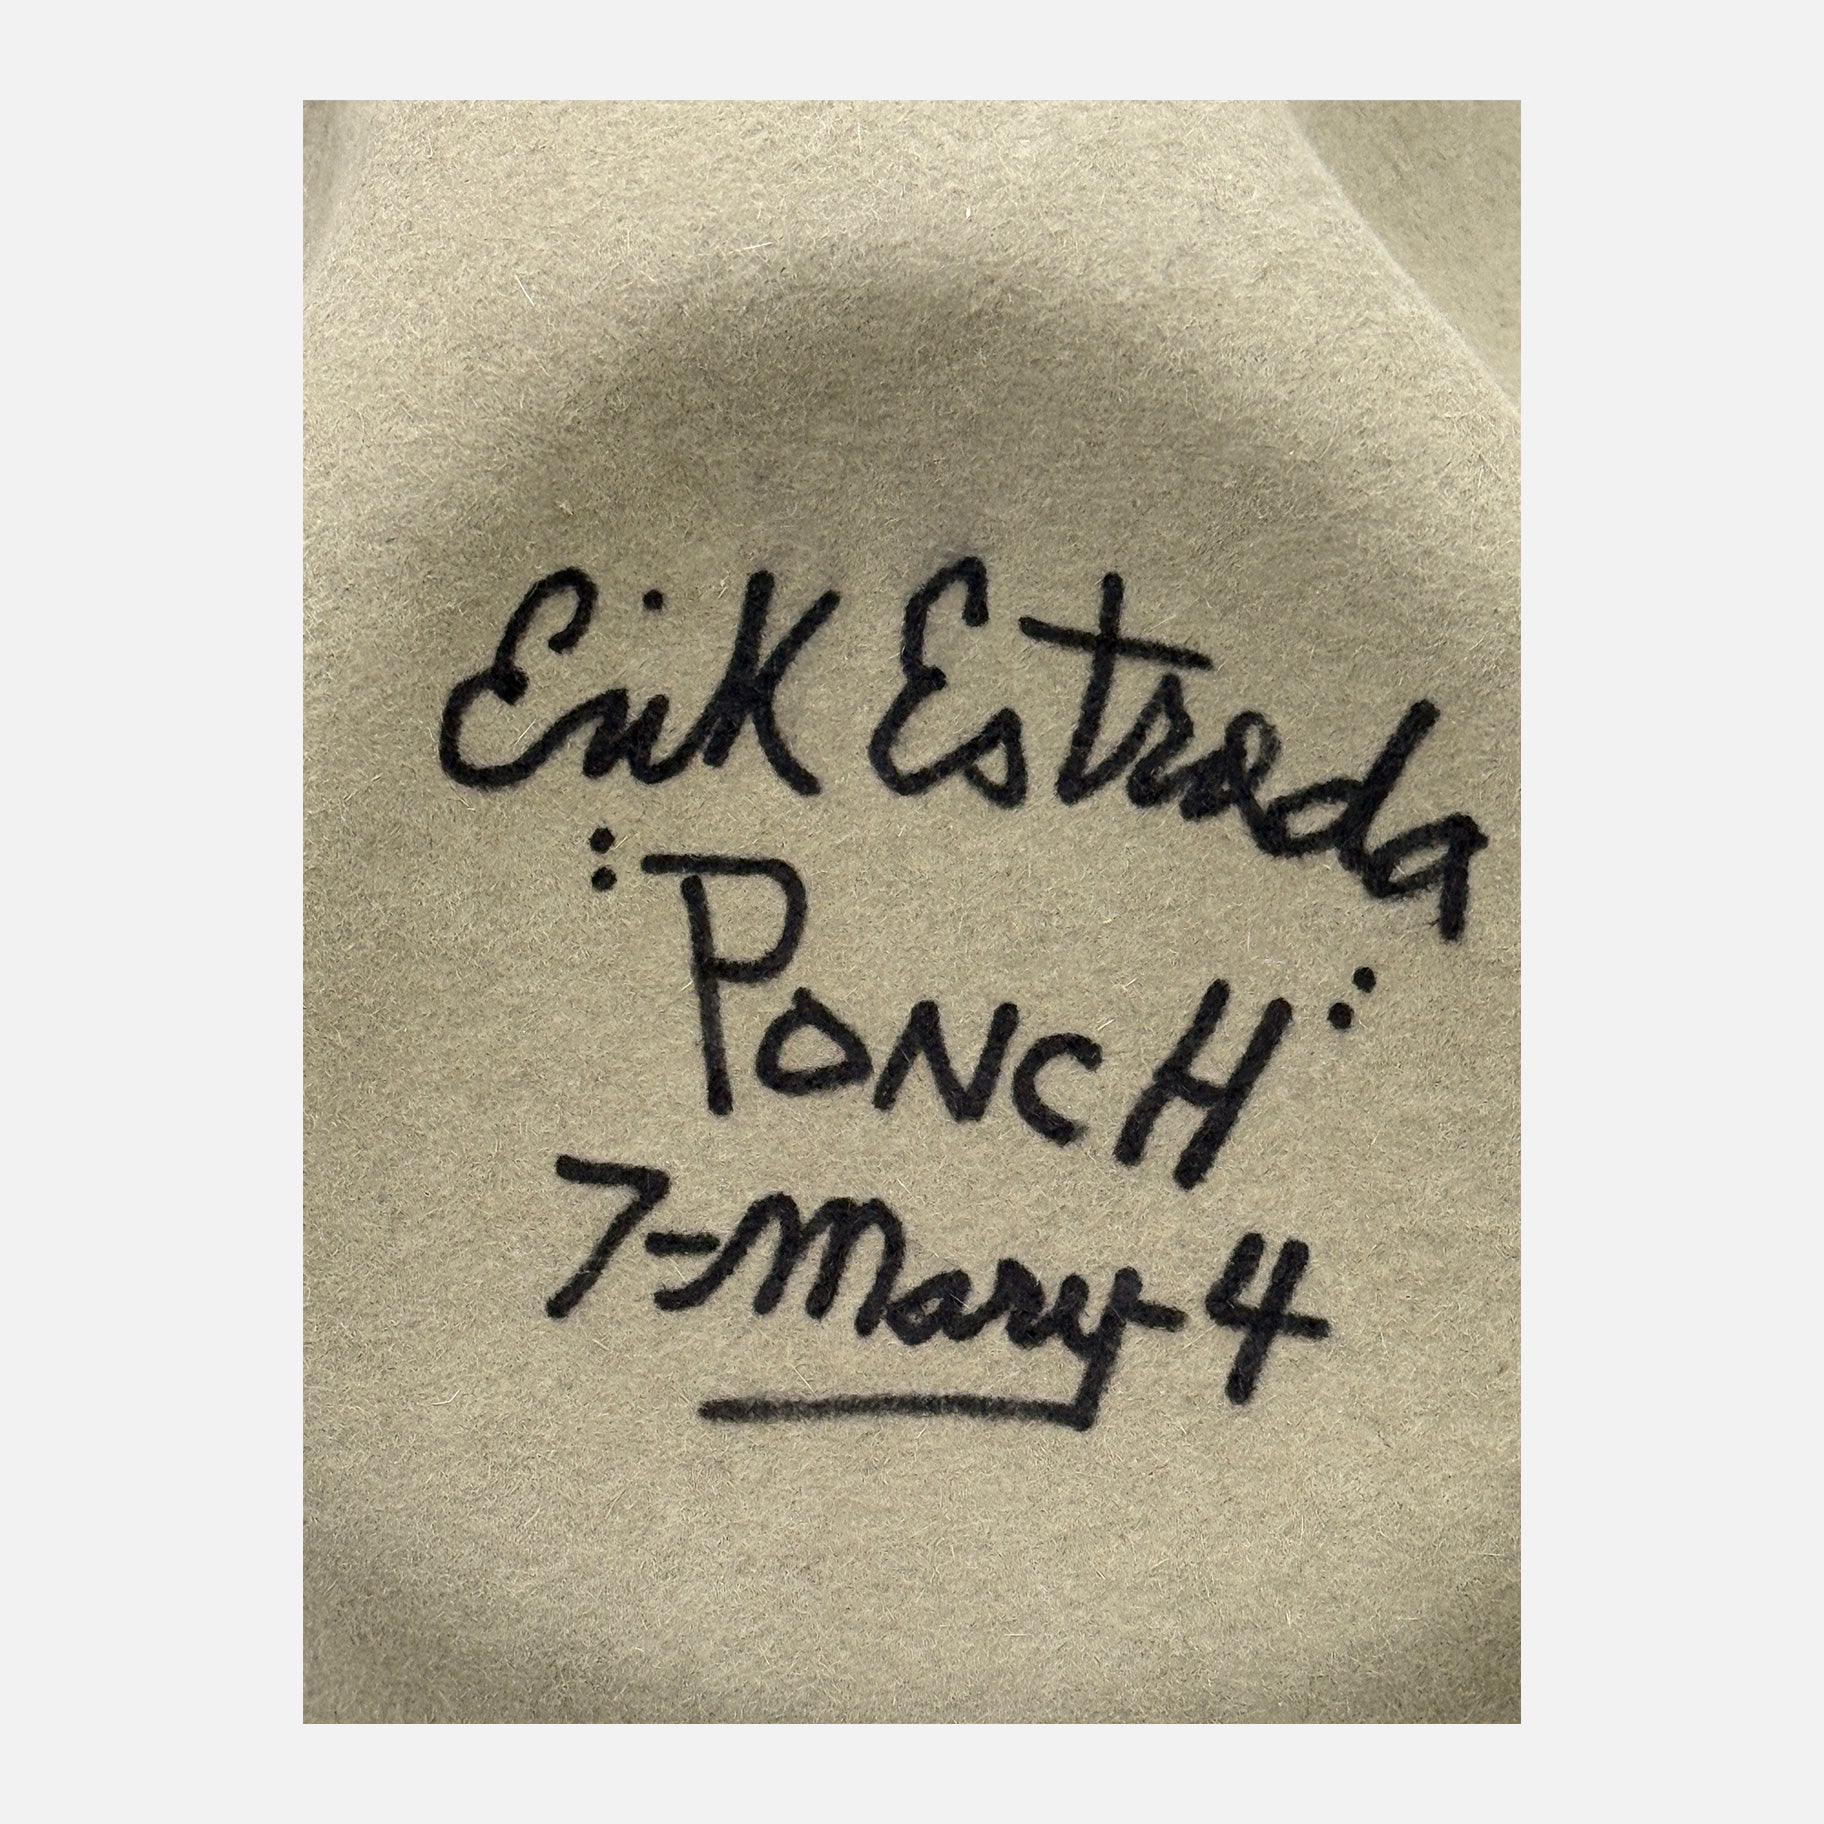 Erik Estrada
"PONCH"
7-Mary-4